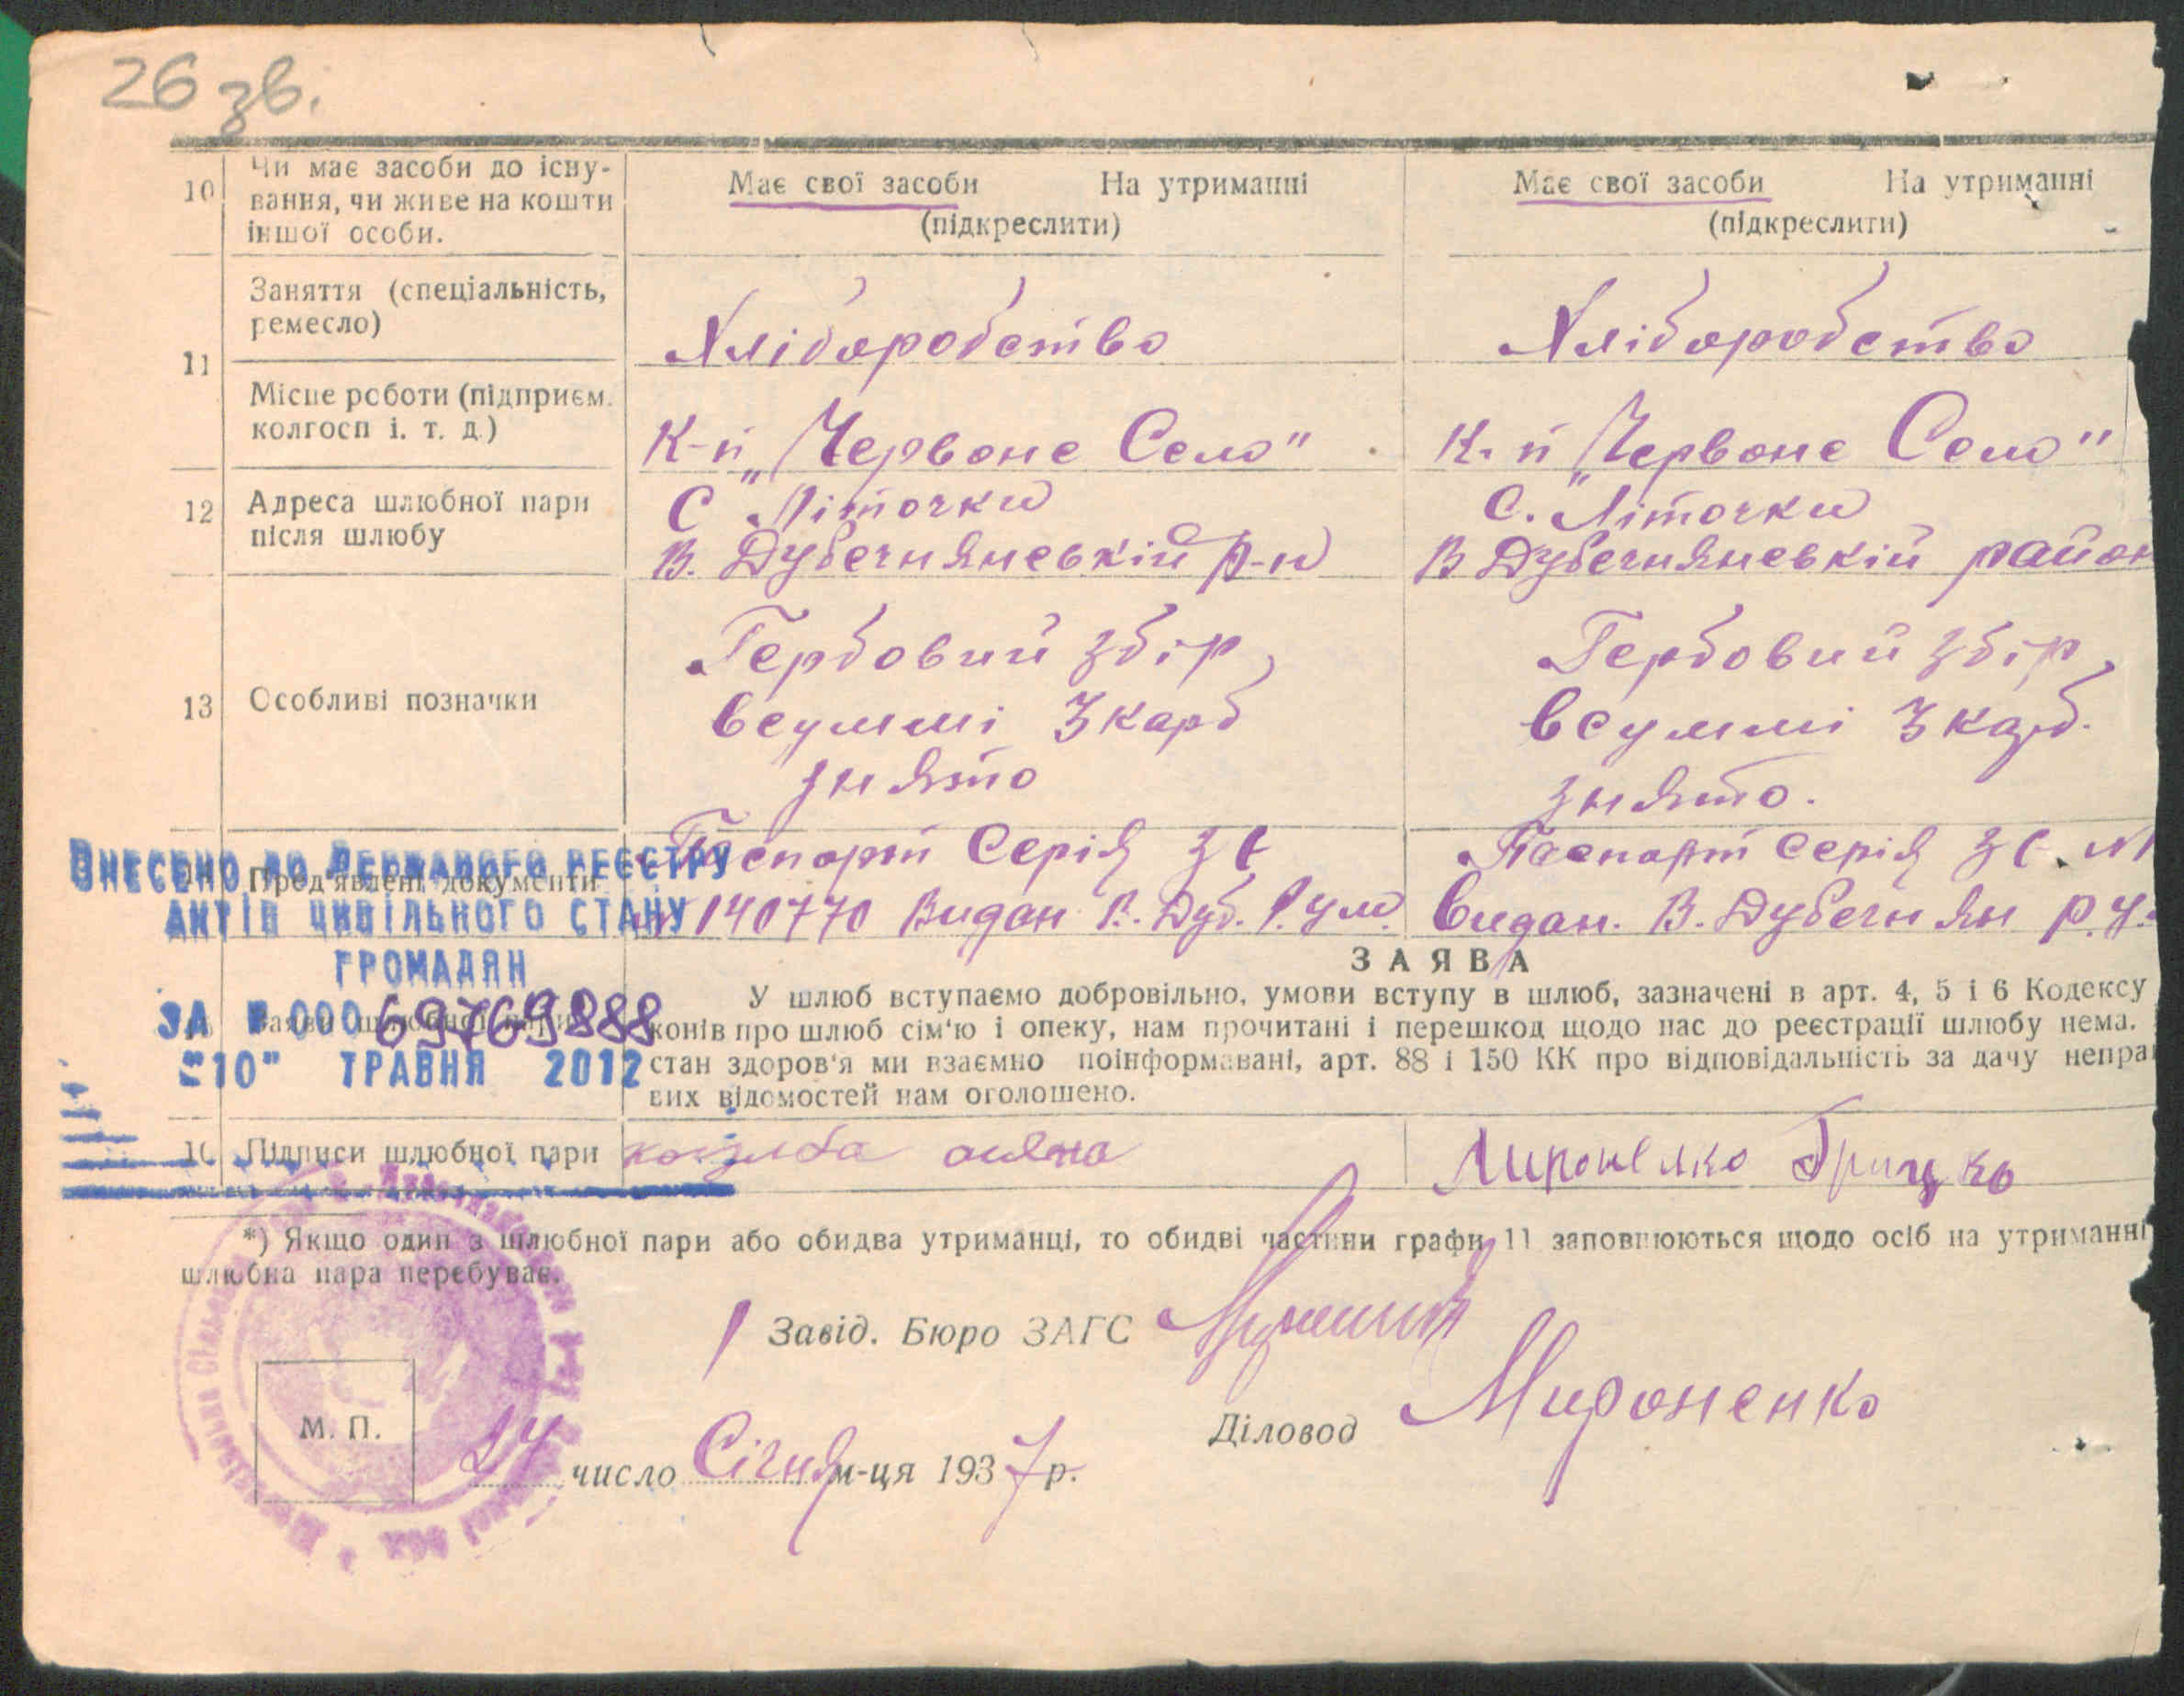 26 зв.
10 Чи має засоби до існу-
вання, чи живе на кошти
іншої особи.
Має свої засоби На утриманні
(підкреслити)
Має свої засоби На утриманні
(підкреслити)
11 Заняття (спеціальність,
ремесло)
Хліборобство
Хліборобство
Місце роботи (підприєм.
колгосп і. т. д.)
К-п „Червоне Село"
К. п „Червоне Село"
12 Адреса шлюбної пари
після шлюбу
С Літочки
В. Дубечнянський р-н
С. Літочки
В Дубечнянській район
13 Особливі позначки
Гербовий збір,
всуммі 3 карб
знято
Гербовий збір,
всуммі 3 карб.
знято.
Пред'явлені документи
Паспорт Серія ЗС
№ 140770 Видан В. Дуб. Р.у.м.
Паспорт серія ЗС. №
Видан. В. Дубечнян р.у.
ВНЕСЕНО ДО ДЕРЖАВНОГО РЕЄСТРУ
АКТІВ ЦИВІЛЬНОГО СТАНУ
ГРОМАДЯН
ЗА № 00069769888
"10" ТРАВНЯ 2012
Заява шлюбної пари
ЗАЯВА
У шлюб вступаємо добровільно, умови вступу в шлюб, зазначені в арт. 4, 5 і 6 Кодексу
конів про шлюб сім'ю і опеку, нам прочитані і перешкод щодо нас до реєстрації шлюбу нема.
стан здоров'я ми взаємно поінформавані, арт. 88 і 150 КК про відповідальність за дачу непра
вих відомостей нам оголошено.
16 Підписи шлюбної пари
Мироненко Грицко
*) Якщо один з шлюбної пари або обидва утриманці, то обидві частини графи 11 заповнюються щодо осіб на утриманні
шлюбна пара перебуває.
Завід. Бюро ЗАГС
Діловод Мироненко
М. П.
24 число Січня м-ця 1937 р.